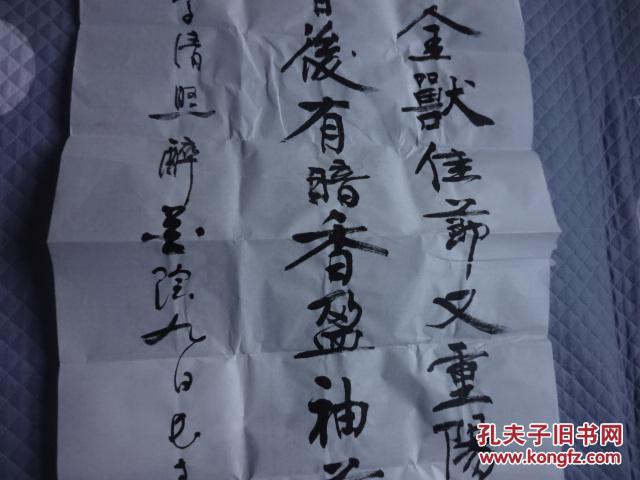 金獸佳節又重陽
後有暗香盈袖
清照醉花陰九日
孔夫子旧书网
www.kongfz.com